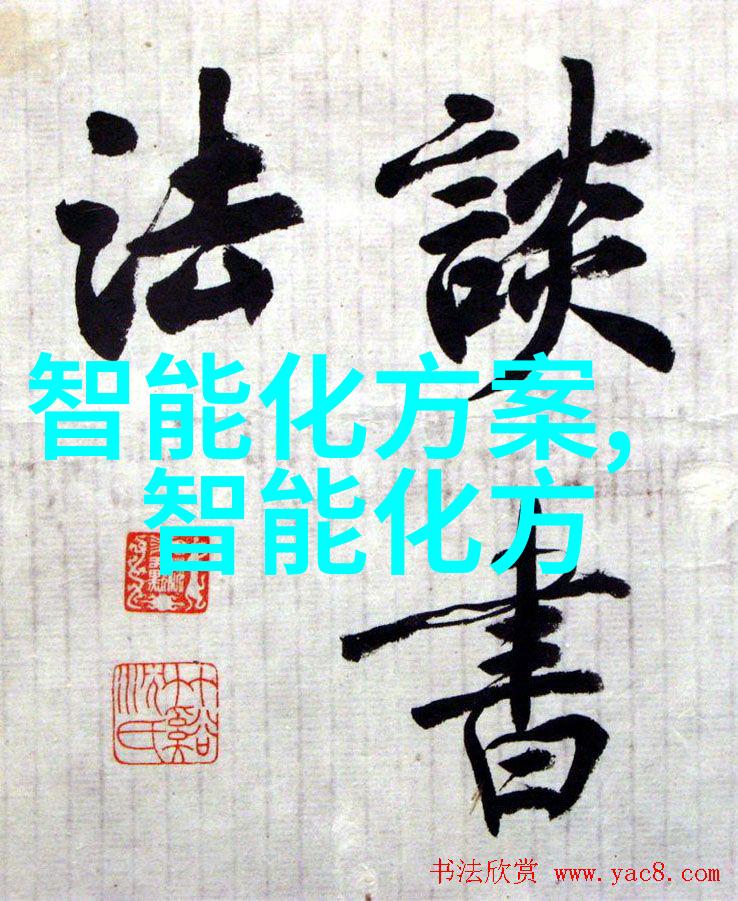 談書
法
智能化方案,
智能化方
书法欣赏 www.yac8.com